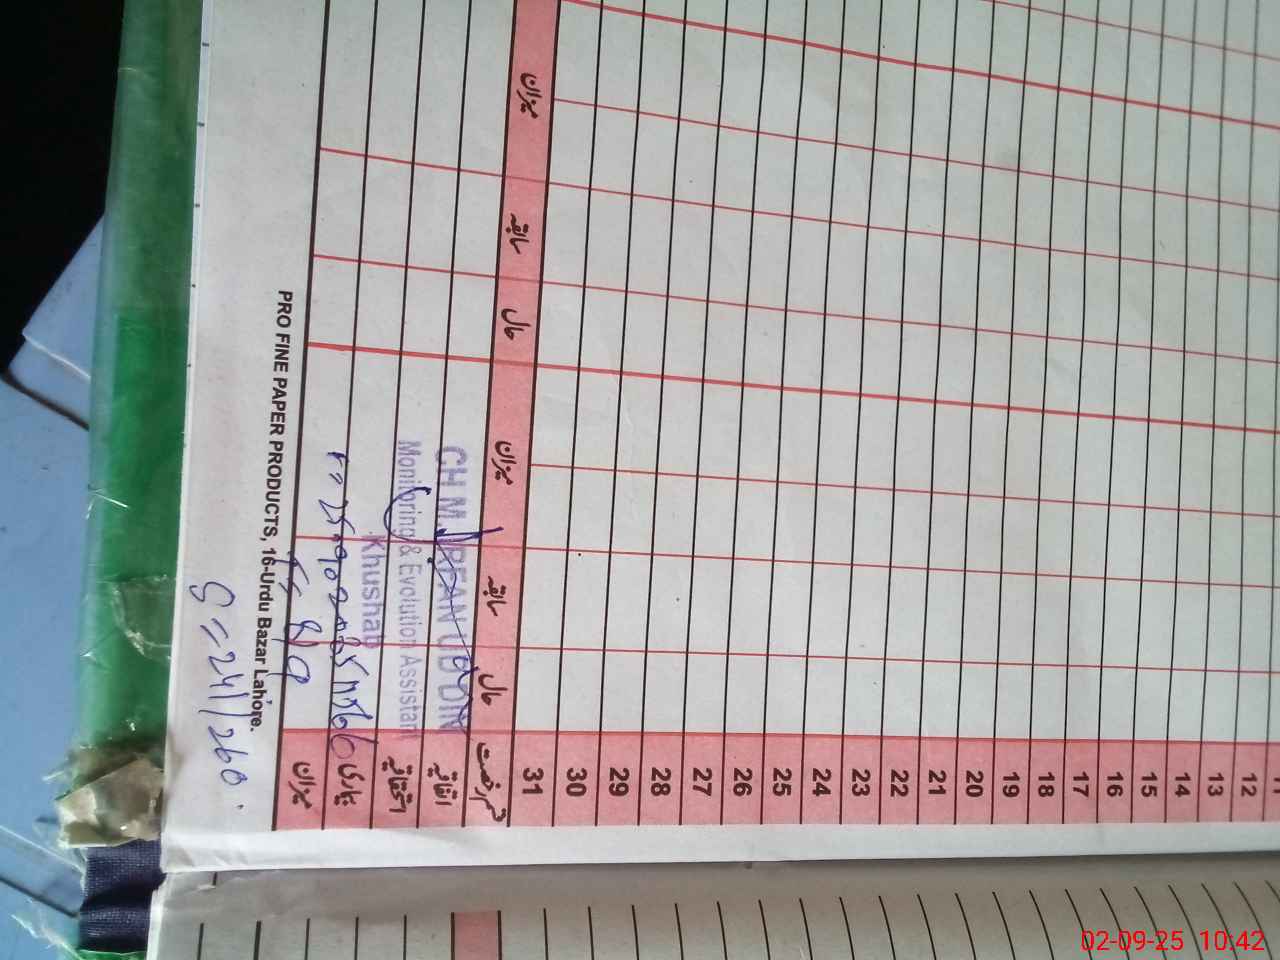 میزان
سابقہ
حال
میزان
سابقہ
حال
قسم رخصت
31
30
29
28
27
26
25
24
23
22
21
20
19
18
17
16
15
14
13
12
اتفاقیہ
استحقاقیہ
بیماری
میزان
CH M. IRFAN UD DIN
Monitoring & Evolution Assistant
Khushab
PRO FINE PAPER PRODUCTS, 16-Urdu Bazar Lahore.
S = 241/260
02-09-25 10:42